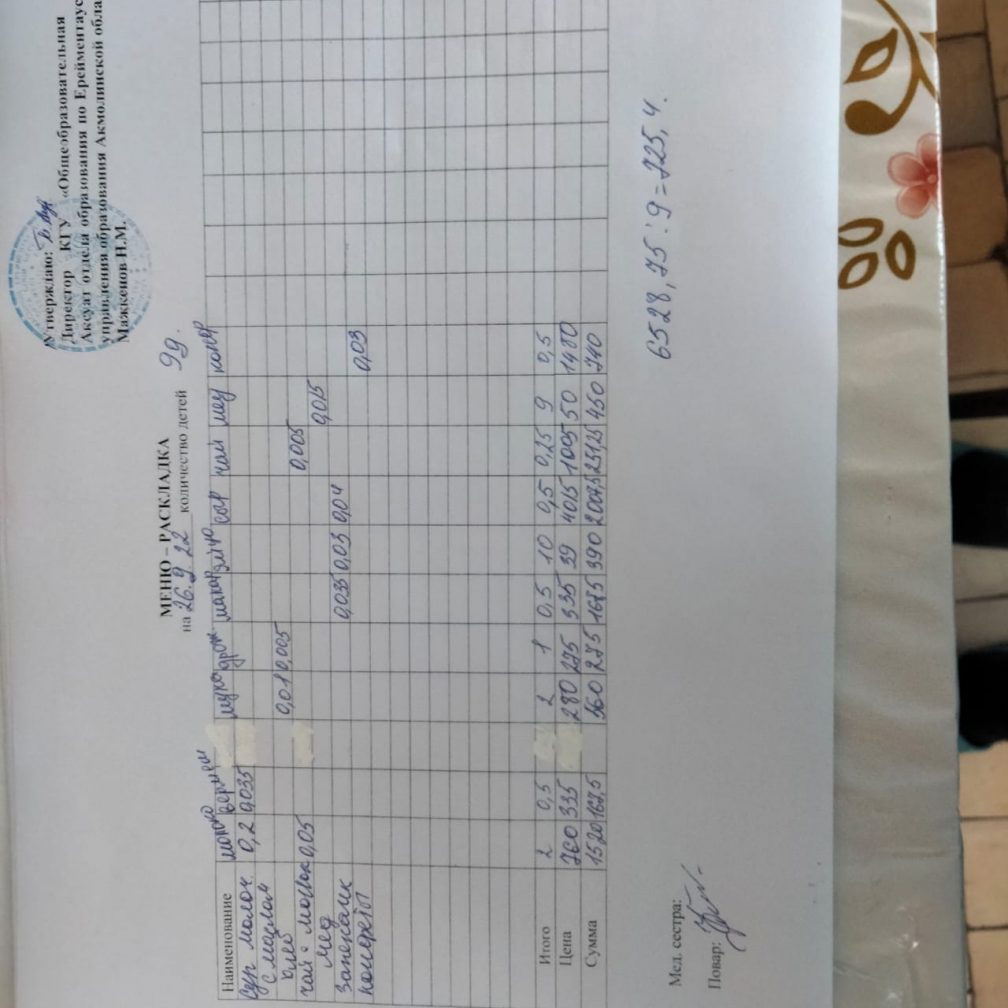 Утверждаю:
Директор КГУ «Общеобразовательная
Аксуат отдела образования по Ерейментаус
управления образования Акмолинской обла
Мажкенов Н.М.
МЕНЮ – РАСКЛАДКА
на 26.9.22 количество детей 99.
Наименование молоко вермеш мука дрож. макар яйцо сыр чай мед конфр
Суп молоч. 0,2 0,035
с маслом
хлеб 0,01 0,005
чай с молок 0,05 0,005
мед 0,015
запеканк 0,035 0,03 0,04
конфеты 0,03
Итого 2 0,5 2 1 0,5 10 0,5 0,25 9 0,5
Цена 760 335 280 275 335 39 4015 1005 50 1480
Сумма 1520 167,5 560 275 167,5 390 2007,5 251,25 450 740
6528,75 : 9 = 725,4.
Мед. сестра:
Повар: